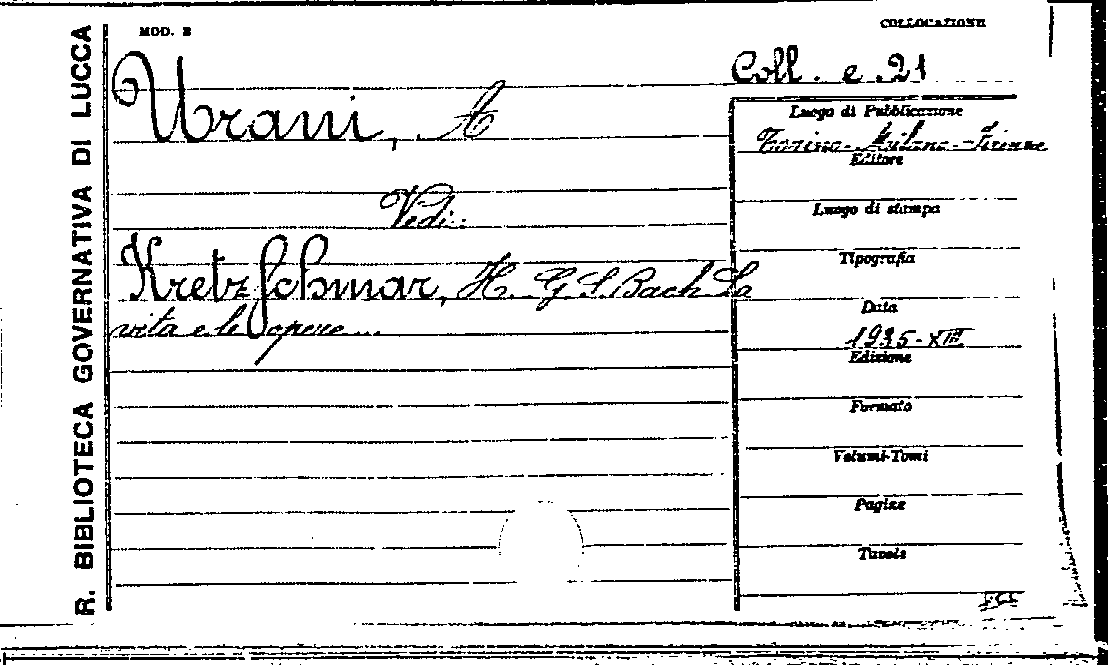 R. BIBLIOTECA GOVERNATIVA DI LUCCA
MOD. B
COLLOCAZIONE
Coll. e 21
Urani, A
Vedi:
Kretzschmar, H. G. S. Bach La
vita e le opere...
Luogo di Pubblicazione
Torino-Milano-Firenze
Editore
Luogo di stampa
Tipografia
Data
1935-XIII
Edizione
Formato
Volumi-Tomi
Pagine
Tavole